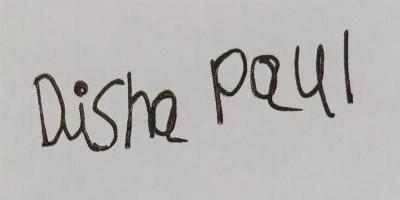 Disha Paul